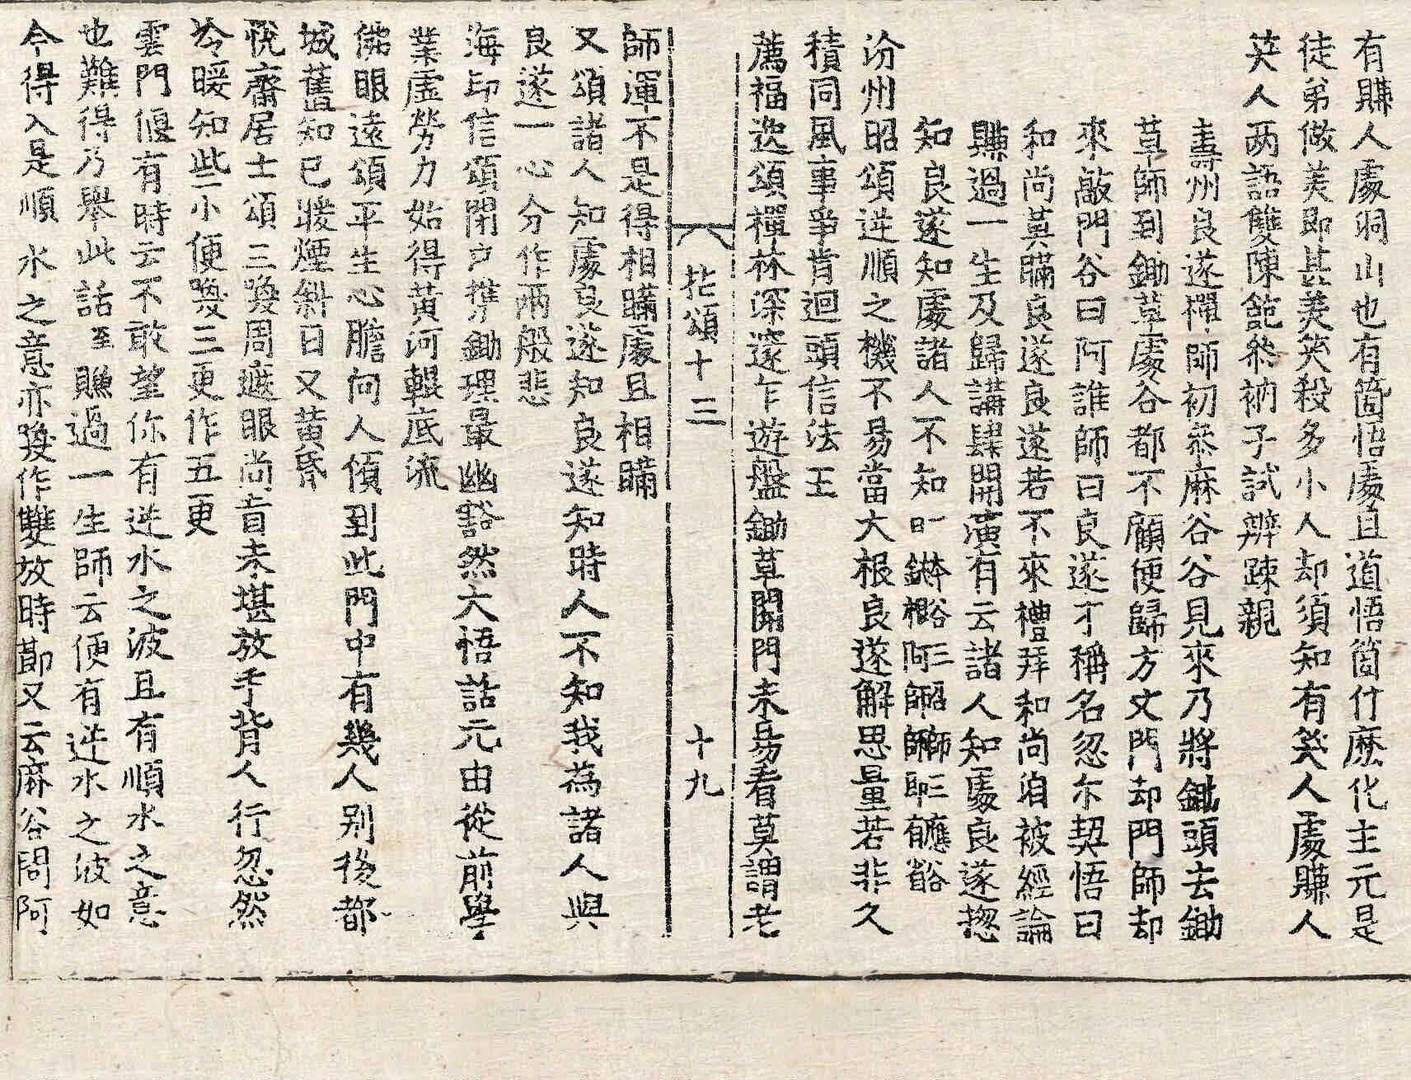 有賺人處洞山也有箇悟處且道悟箇什麽化主元是
徒弟做羙即甚羙笑殺多小人却須知有笑人處賺人
笑人两語雙陳齩然衲子試辨踈親
壽州良遂禪師初叅麻谷谷見來乃將鋤頭去鋤
草師到鋤草處谷都不顧便歸方丈門却門師却
來敲門谷曰阿誰師曰良遂才稱名忽尔契悟曰
和尚莫瞞良遂良遂若不來禮拜和尚洎被經論
賺過一生及歸講肆開演有云諸人知處良遂揔
知良遂知處諸人不知
汾州昭頌逆順之機不易當大根良遂解思量若非久
積同風事爭肯迴頭信法王
薦福逸頌禪林深邃乍遊盤鋤草開門未易看莫謂老
拈頌十三 十九
師渾不是得相瞞處且相瞞
又頌諸人知處良遂知良遂知時人不知我為諸人與
良遂一心分作兩般悲
海印信頌閉戶携鋤理最幽豁然大悟話元由從前學
業虛勞力始得黃河輥底流
佛眼遠頌平生心膽向人傾到此門中有幾人別後都
城舊知已暖煙斜日又黃昏
悅齋居士頌三喚周遮眼尚盲未堪放手背人行忽然
冷暖知些小便喚三更作五更
雲門偃有時云不敢望你有逆水之波且有順水之意
也難得乃舉此話至賺過一生師云便有逆水之波如
今得入是順水之意亦喚作雙放時節又云麻谷問阿